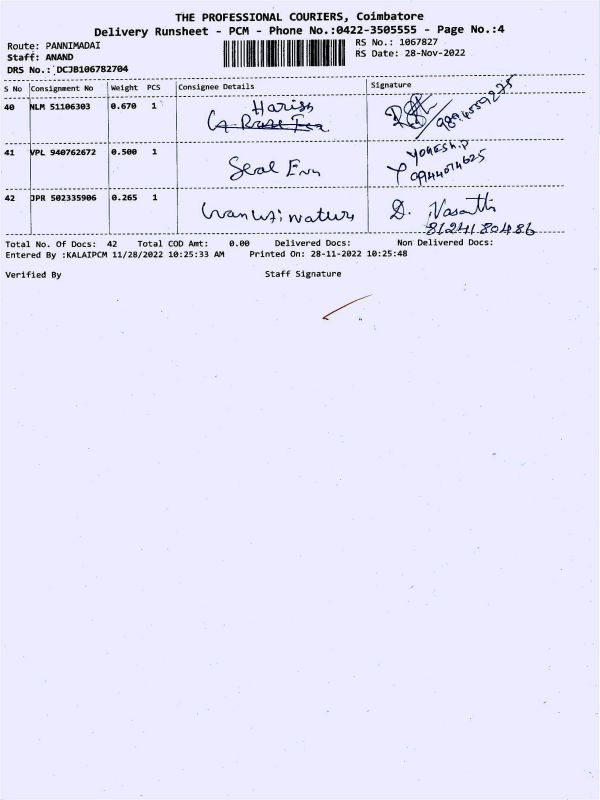 THE PROFESSIONAL COURIERS, Coimbatore
Delivery Runsheet - PCM - Phone No.:0422-3505555 - Page No.:4
Route: PANNIMADAI
Staff: ANAND
DRS No.: DCJB106782704
RS No.: 1067827
RS Date: 28-Nov-2022
S No Consignment No Weight PCS Consignee Details Signature
40 NLM 51106303 0.670 1 Hariss
41 VPL 940762672 0.500 1 Seal Env
YOGESH.P
09144074625
42 JPR 502335906 0.265 1
D. Vasanthi
8124180486
Total No. Of Docs: 42 Total COD Amt: 0.00 Delivered Docs: Non Delivered Docs:
Entered By :KALAIPCM 11/28/2022 10:25:33 AM Printed On: 28-11-2022 10:25:48
Verified By Staff Signature